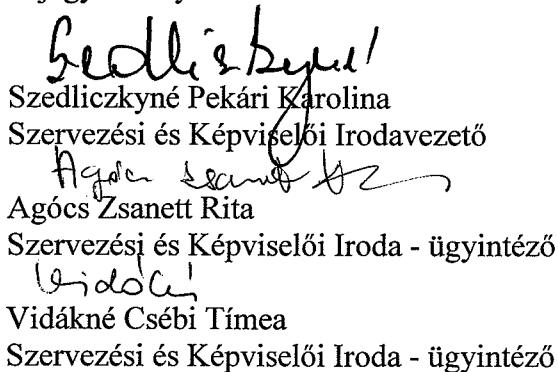 Szedliczkyné Pekári Karolina
Szervezési és Képviselői Irodavezető
Agócs Zsanett
Agócs Zsanett Rita
Szervezési és Képviselői Iroda - ügyintéző
Vidákné Csébi Tímea
Szervezési és Képviselői Iroda - ügyintéző